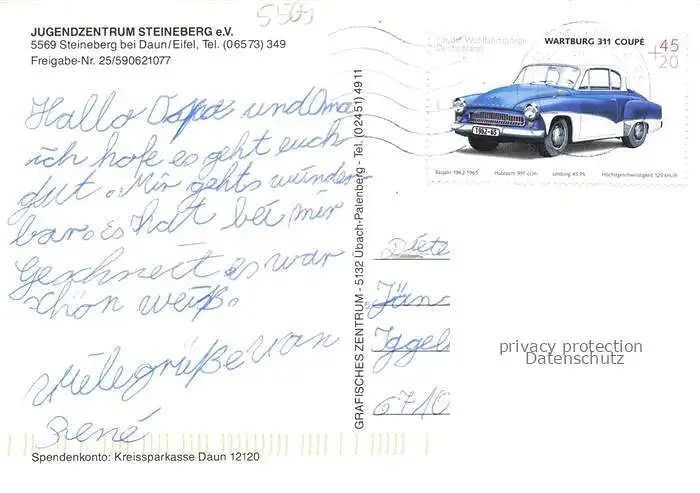 5569
JUGENDZENTRUM STEINEBERG e.V.
5569 Steineberg bei Daun/Eifel, Tel. (06573) 349
Freigabe-Nr. 25/590621077
Hallo Oopa und Oma
ich hofe es geht euch
gut. Mir gehts wunder-
bar. es hat bei mir
Geschneit es war
schön weiß.
vielegrüße von
René
Spendenkonto: Kreissparkasse Daun 12120
GRAFISCHES ZENTRUM - 5132 Übach-Palenberg - Tel. (02451) 4911
Für die Wohlfahrtspflege
Deutschland
WARTBURG 311 COUPÉ
45
+20
1962-65
Baujahr 1962-1965 Hubraum 991 ccm Leistung 45 PS Höchstgeschwindigkeit 125 km/h
Diete
Jän
Iggel
6710
privacy protection
Datenschutz